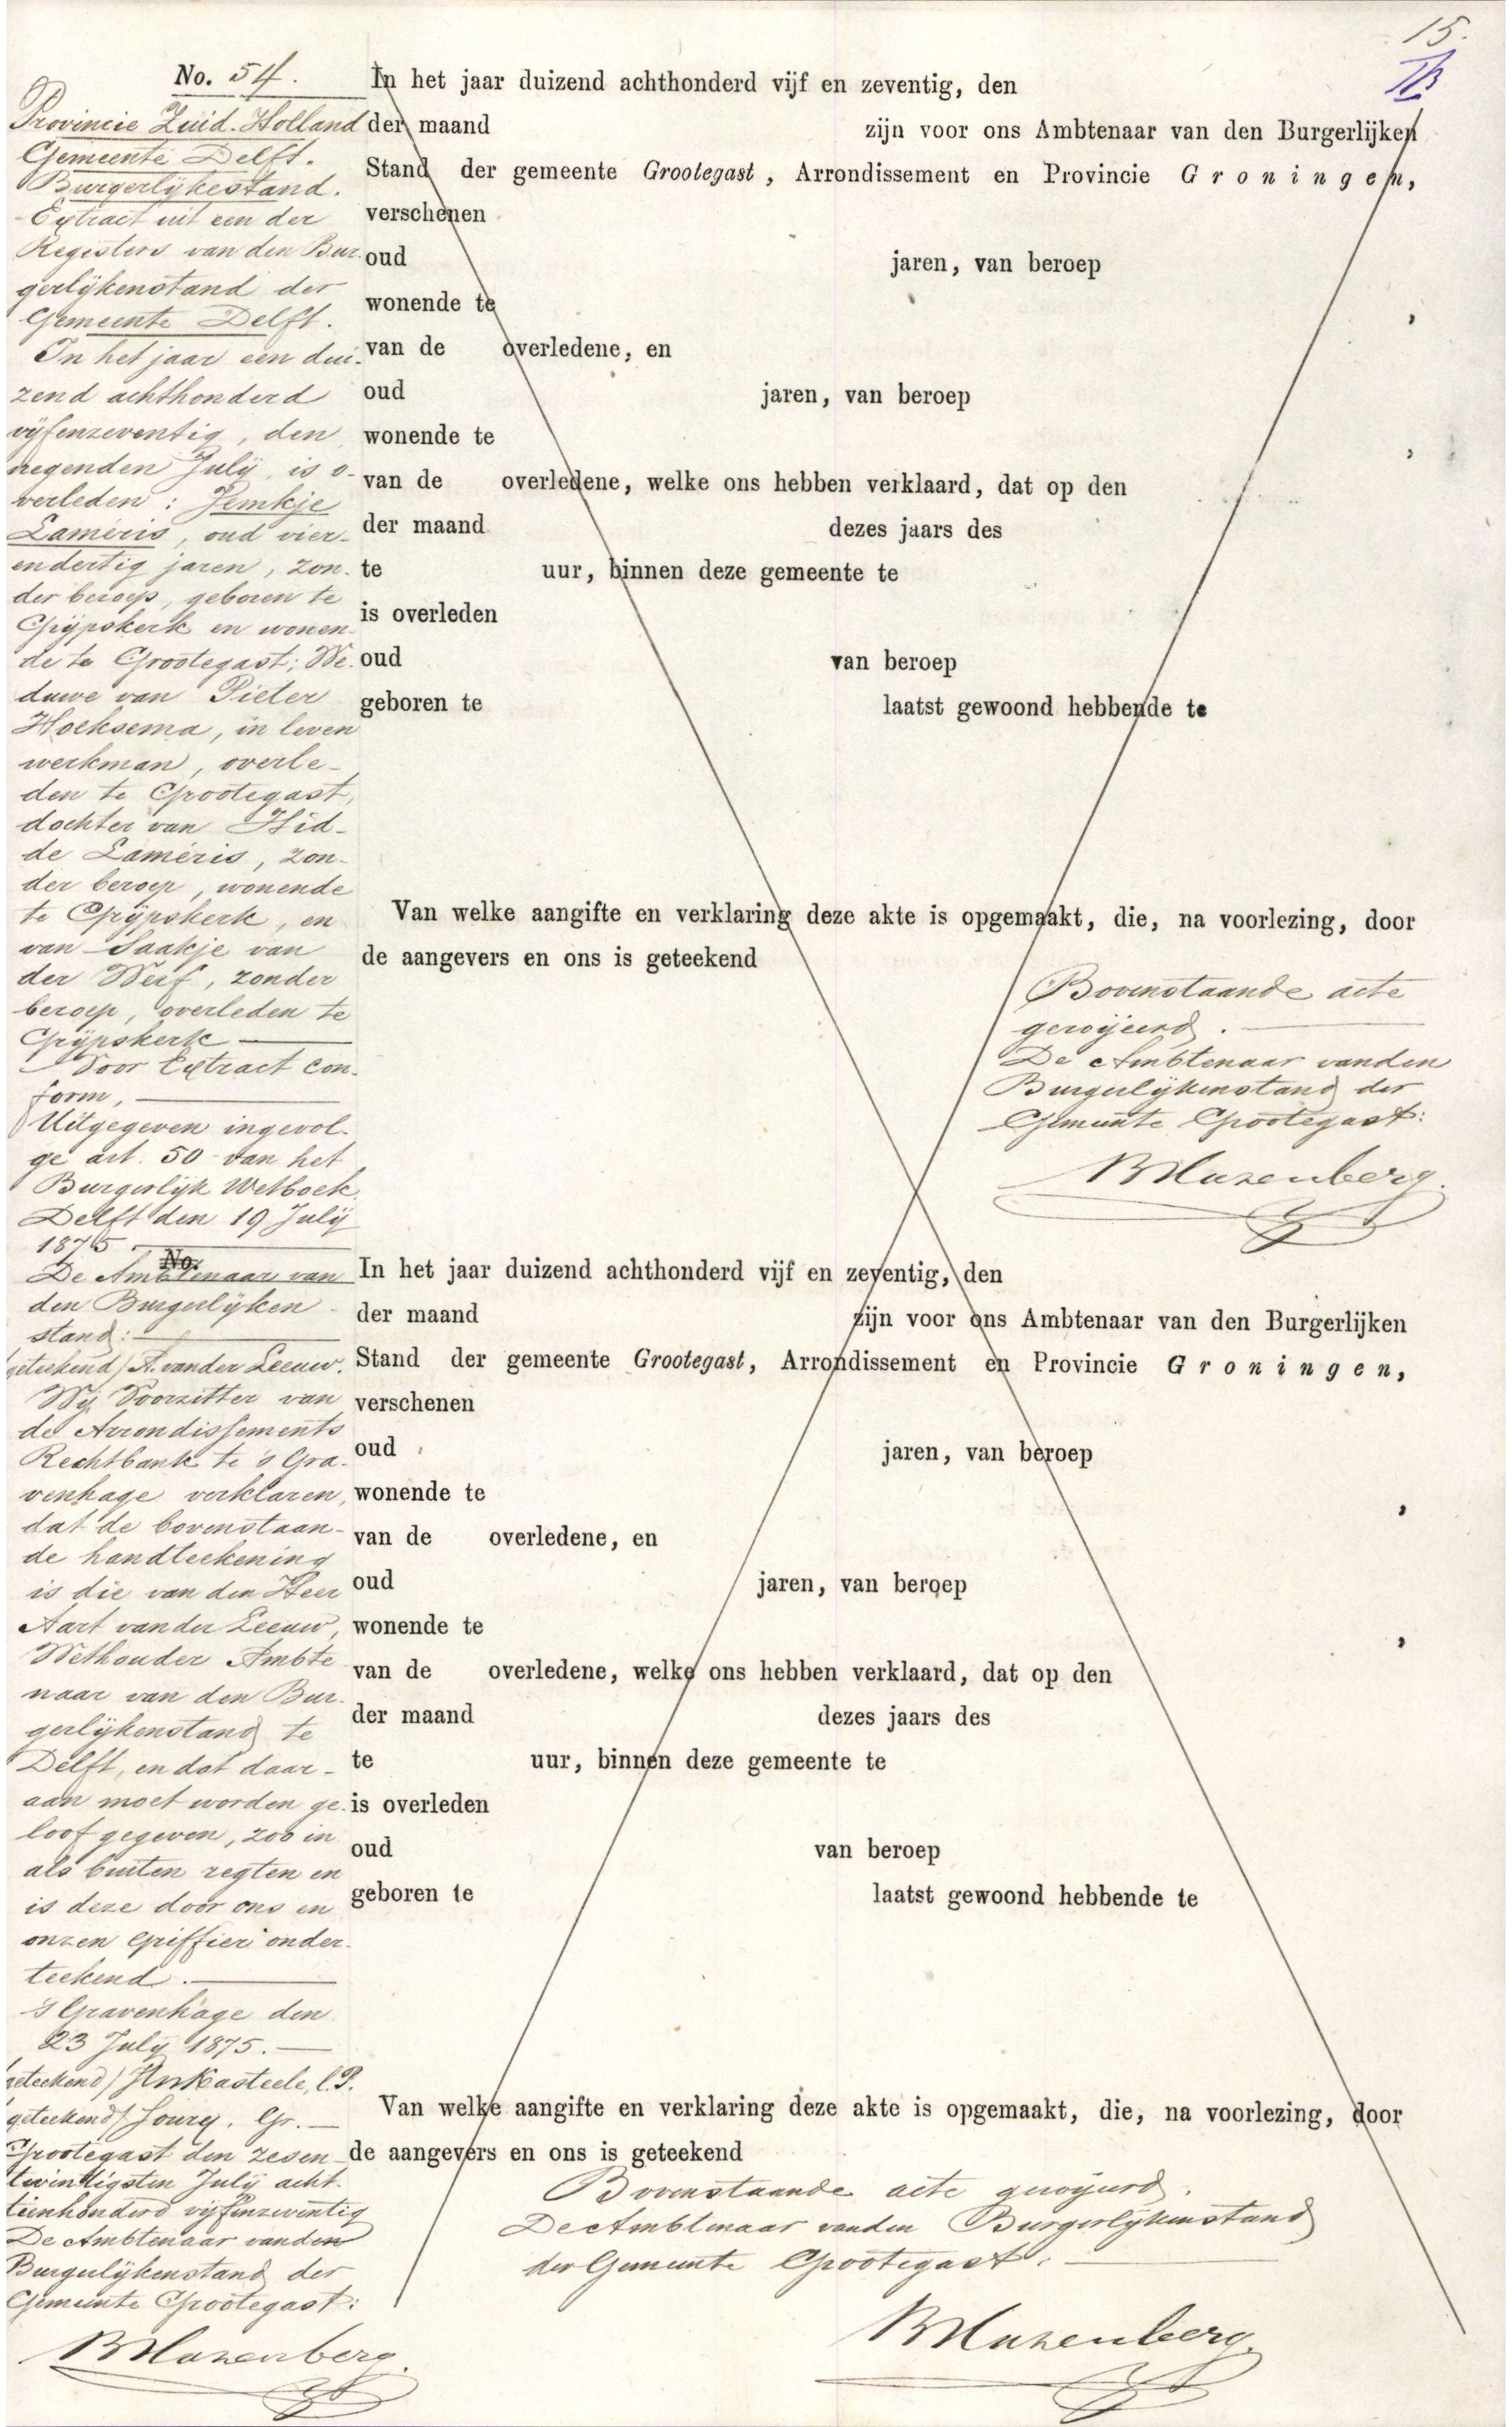 15.
No. 54.
Provincie Zuid-Holland
Gemeente Delft.
Burgerlijkestand.
Extract uit een der
Registers van den Bur-
gerlijkenstand der
Gemeente Delft.
In het jaar een dui-
zend achthonderd
vijfenzeventig, den
negenden Julij, is o-
verleden: Jemkje
Laméris, oud vier-
endertig jaren, zon-
der beroep, geboren te
Grijpskerk en wonen-
de te Grootegast; We-
duwe van Pieter
Hoeksema, in leven
werkman, overle-
den te Grootegast,
dochter van Hid-
de Laméris, zon-
der beroep, wonende
te Grijpskerk, en
van Saakje van
der Werf, zonder
beroep, overleden te
Grijpskerk
Voor Extract con-
form,
Uitgegeven ingevol-
ge art. 50 van het
Burgerlijk Wetboek.
Delft den 19 Julij
1875
De Ambtenaar van
den Burgerlijken
stand:
geteekend/ A. van der Leeuw.
Wij Voorzitter van
de Arrondissements
Rechtbank te 's Gra-
venhage verklaren,
dat de bovenstaan-
de handteekening
is die van den Heer
Aart van der Leeuw,
Wethouder Ambte
naar van den Bur-
gerlijkenstand te
Delft, en dat daar-
aan moet worden ge-
loof gegeven, zoo in
als buiten regten en
is deze door ons en
onzen Griffier onder-
teekend.
's Gravenhage den
23 July 1875.
geteekend/ Kasteele, l.P.
geteekend/ Gr.
Grootegast den zesen-
twintigsten Julij acht-
tienhonderd vijfenzeventig
De Ambtenaar van den
Burgerlijkenstand der
Gemeente Grootegast:
BMazenberg.
In het jaar duizend achthonderd vijf en zeventig, den
der maand zijn voor ons Ambtenaar van den Burgerlijken
Stand der gemeente Grootegast, Arrondissement en Provincie Groningen,
verschenen
oud jaren, van beroep
wonende te ,
van de overledene, en
oud jaren, van beroep
wonende te ,
van de overledene, welke ons hebben verklaard, dat op den
der maand dezes jaars des
te uur, binnen deze gemeente te
is overleden
oud van beroep
geboren te laatst gewoond hebbende te
Van welke aangifte en verklaring deze akte is opgemaakt, die, na voorlezing, door
de aangevers en ons is geteekend
Bovenstaande acte
geroijeerd.
De Ambtenaar van den
Burgerlijkenstand der
Gemeente Grootegast:
BMazenberg.
No.
In het jaar duizend achthonderd vijf en zeventig, den
der maand zijn voor ons Ambtenaar van den Burgerlijken
Stand der gemeente Grootegast, Arrondissement en Provincie Groningen,
verschenen
oud jaren, van beroep
wonende te ,
van de overledene, en
oud jaren, van beroep
wonende te ,
van de overledene, welke ons hebben verklaard, dat op den
der maand dezes jaars des
te uur, binnen deze gemeente te
is overleden
oud van beroep
geboren te laatst gewoond hebbende te
Van welke aangifte en verklaring deze akte is opgemaakt, die, na voorlezing, door
de aangevers en ons is geteekend
Bovenstaande acte geroijeerd.
De Ambtenaar van den Burgerlijkenstand
der Gemeente Grootegast:
BMazenberg.